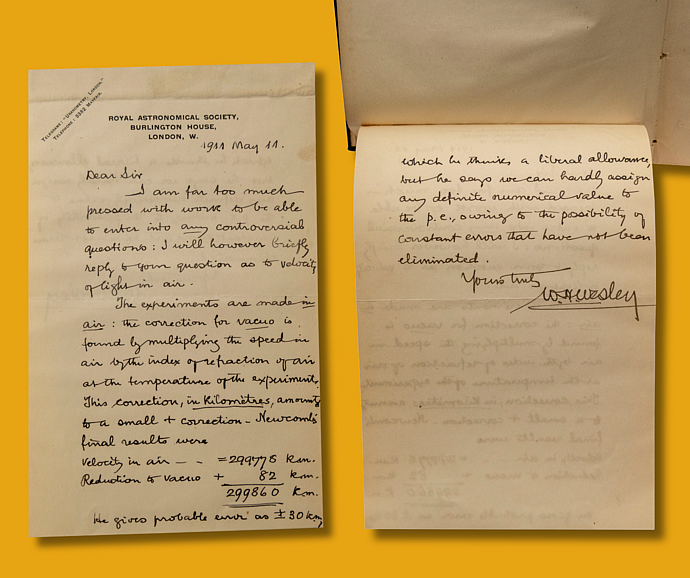 TELEGRAMS: "UNINOMETRY, LONDON."
TELEPHONE: 3382 MAYFAIR.
ROYAL ASTRONOMICAL SOCIETY,
BURLINGTON HOUSE,
LONDON, W.
1911 May 11.
Dear Sir
I am far too much
pressed with work to be able
to enter into any controversial
questions: I will however briefly
reply to your question as to velocity
of light in air.
The experiments are made in
air: the correction for vacuo is
found by multiplying the speed in
air by the index of refraction of air
at the temperature of the experiment.
This correction, in Kilomètres, amounts
to a small + correction - Newcomb's
final results were
Velocity in air — – = 299778 Km.
Reduction to vacuo + 82 Km.
299860 Km.
He gives probable error as ± 30 km
which he thinks a liberal allowance,
but he says we can hardly assign
any definite numerical value to
the p.e., owing to the possibility of
constant errors that have not been
eliminated.
Yours truly
W.H.Wesley